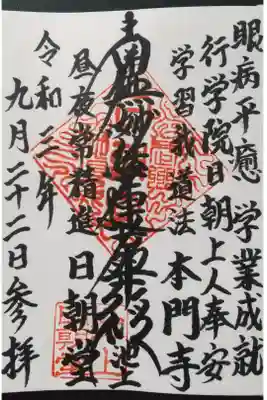 眼病平癒 学業成就
行学院日朝上人奉安
学習我道法 本門寺
南無妙法蓮華経 池上
昼夜常精進 日朝堂
令和三年
九月二十二日参拝